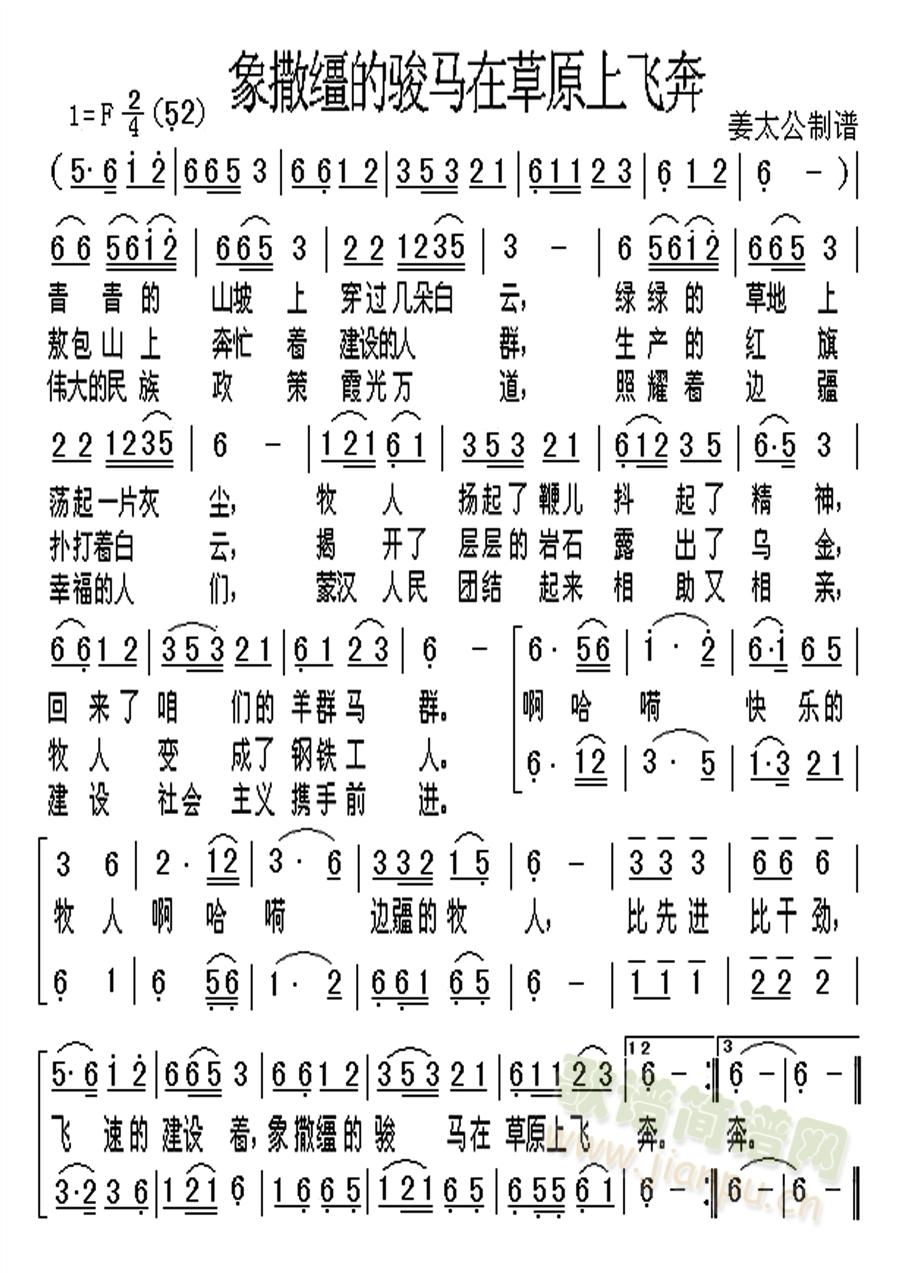 象撒缰的骏马在草原上飞奔
1=F 2/4 (5̣2)
姜太公制谱
(5·6 i 2̇|665 3|6 6̣12|353 21|6̣11 23|6̣ 12|6̣ -)|
66 56i2̇|665 3|22 1235|3 -|6 56i2̇|665 3|
青青的 山坡上 穿过几朵白 云, 绿绿的 草地上
敖包山上 奔忙着 建设的人 群, 生产的 红旗
伟大的民族 政策 霞光万 道, 照耀着 边疆
22 1235|6 -|121 6̣1|353 21|6̣12 35|6·5 3|
荡起一片灰 尘, 牧人 扬起了鞭儿 抖起了精神,
扑打着白 云, 揭开了 层层的岩石 露出了乌金,
幸福的人 们, 蒙汉人民 团结起来 相助又相亲,
6 6̣12|353 21|6̣1 23|6̣ -|6·56|i·2̇|6·i 65|
回来了咱们的羊群马 群。 啊哈 嗬 快乐的
牧人变成了钢铁工 人。
6̣·12|3·5|1·3 21|
建设社会主义携手前 进。
3 6|2·12|3·6|332 15̣|6̣ -|3 3 3|6 6 6|
牧人啊哈 嗬 边疆的牧 人, 比先进 比干劲,
6̣ 1|6̣ 5̣6̣|1·2|6̣6̣1 6̣5̣|6̣ -|1 1 1|2 2 2|
5·6 i 2̇|665 3|6 6̣12|353 21|6̣11 23|12 6̣ -:‖3 6̣ -|6̣ -‖
飞速的建设着,象撒缰的骏马在草原上飞 奔。 奔。
3·2 36|121 6̣|16̣ 6̣5̣|121 6̣5̣|6̣5̣5̣ 6̣1|6̣ -:‖6 -|6 -‖
歌谱简谱网
www.jianpu.cn